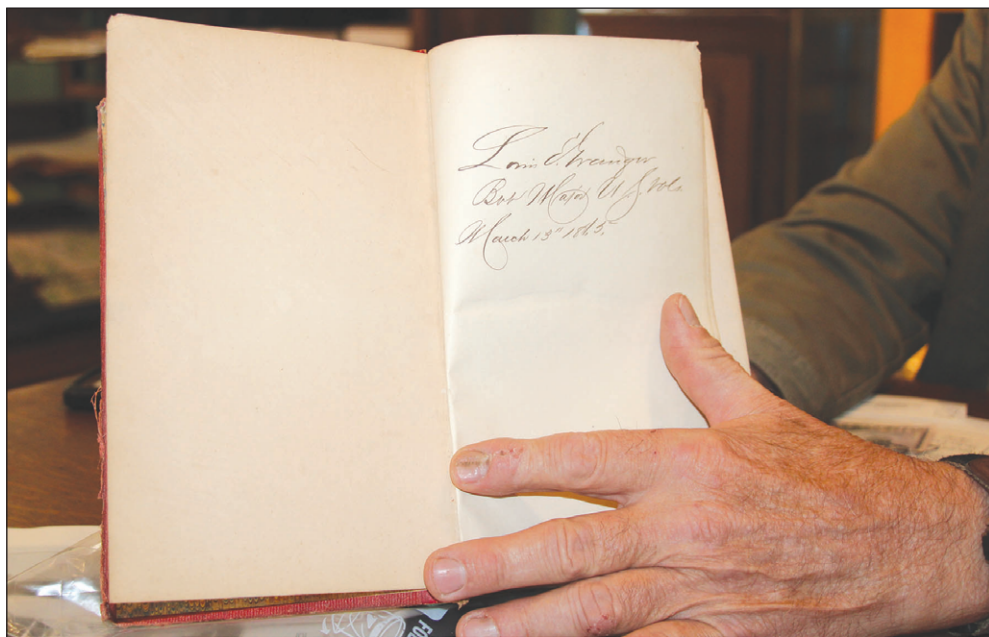 Louis E. Granger
Bvt Major U.S. Vols
March 13" 1865.
FOU